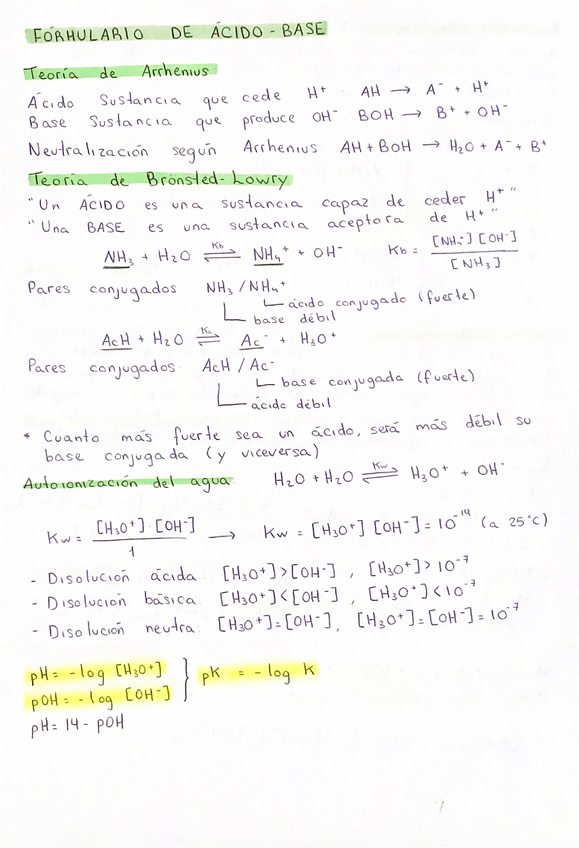 FÓRMULARIO DE ÁCIDO-BASE
Teoría de Arrhenius
Ácido Sustancia que cede H⁺ AH → A⁻ + H⁺
Base Sustancia que produce OH⁻ BOH → B⁺ + OH⁻
Neutralización según Arrhenius AH + BOH → H₂O + A⁻ + B⁺
Teoría de Brönsted-Lowry
"Un ÁCIDO es una sustancia capaz de ceder H⁺"
"Una BASE es una sustancia aceptora de H⁺"
NH₃ + H₂O ⇌ (Kb) NH₄⁺ + OH⁻ Kb = [NH₄⁺][OH⁻] / [NH₃]
Pares conjugados NH₃/NH₄⁺
ácido conjugado (fuerte)
base débil
AcH + H₂O ⇌ (Ka) Ac⁻ + H₃O⁺
Pares conjugados AcH / Ac⁻
base conjugada (fuerte)
ácido débil
* Cuanto más fuerte sea un ácido, será más débil su
base conjugada (y viceversa)
Autoionización del agua H₂O + H₂O ⇌ (Kw) H₃O⁺ + OH⁻
Kw = [H₃O⁺]·[OH⁻] / 1 → Kw = [H₃O⁺][OH⁻] = 10⁻¹⁴ (a 25°C)
- Disolución ácida [H₃O⁺]>[OH⁻], [H₃O⁺]>10⁻⁷
- Disolución básica [H₃O⁺]<[OH⁻], [H₃O⁺]<10⁻⁷
- Disolución neutra: [H₃O⁺]=[OH⁻], [H₃O⁺]=[OH⁻]=10⁻⁷
pH = -log [H₃O⁺]
pOH = -log [OH⁻] } pK = -log K
pH = 14 - pOH